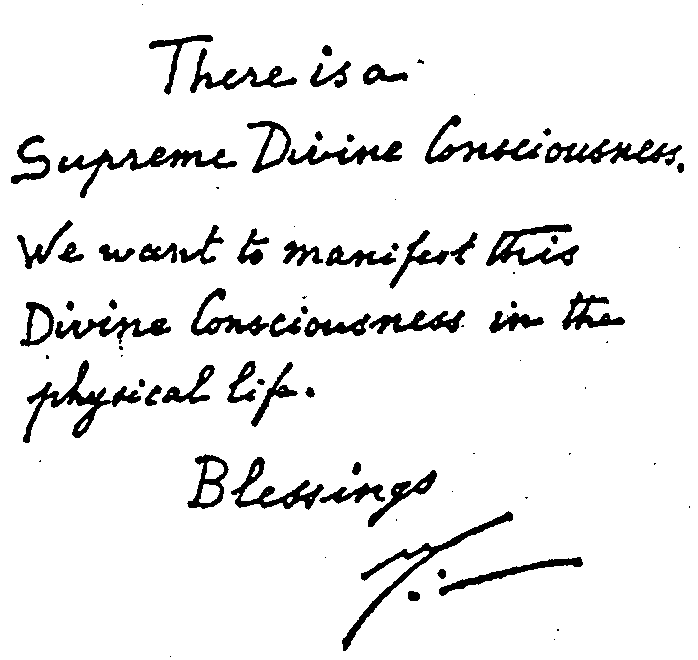 There is a
Supreme Divine Consciousness.
We want to manifest this
Divine Consciousness in the
physical life.
Blessings